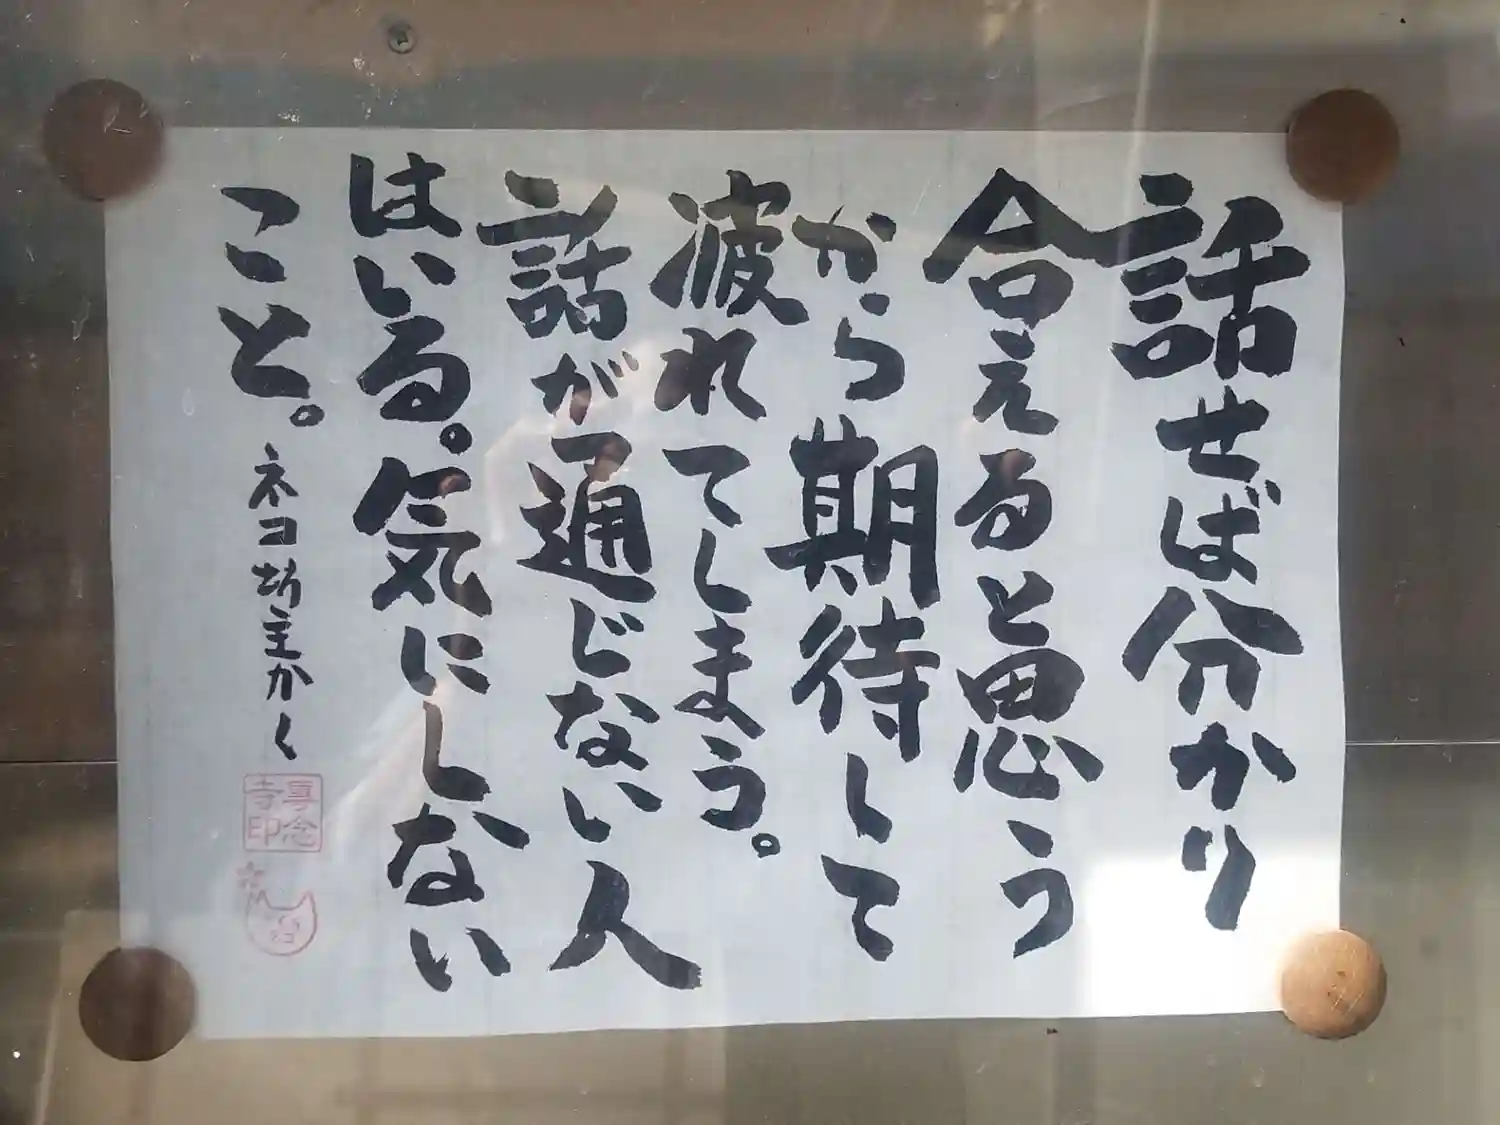 話せば分かり
合えると思う
から期待して
疲れてしまう。
話が通じない人
はいる。気にしない
こと。
ネコ坊主かく
専念
寺印